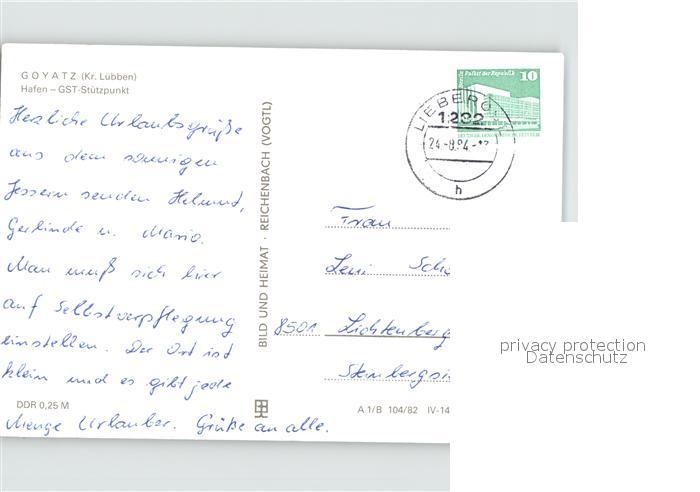 GOYATZ (Kr. Lübben)
Hafen – GST-Stützpunkt
Herzliche Urlaubsgrüße
aus dem sonnigen
Jessern senden Helmut,
Gerlinde u. Mario.
Man muß sich hier
auf Selbstverpflegung
einstellen. Der Ort ist
klein und es gibt jede
Menge Urlauber. Grüße an alle.
DDR 0,25 M
BILD UND HEIMAT · REICHENBACH (VOGTL)
A 1/B 104/82 IV-14
Palast der Republik 10
DEUTSCHE DEMOKRATISCHE REPUBLIK
LIEBERO
1232
24.-8.84.-
h
Frau
Leni Sch
8501 Lichtenberg
privacy protection
Datenschutz